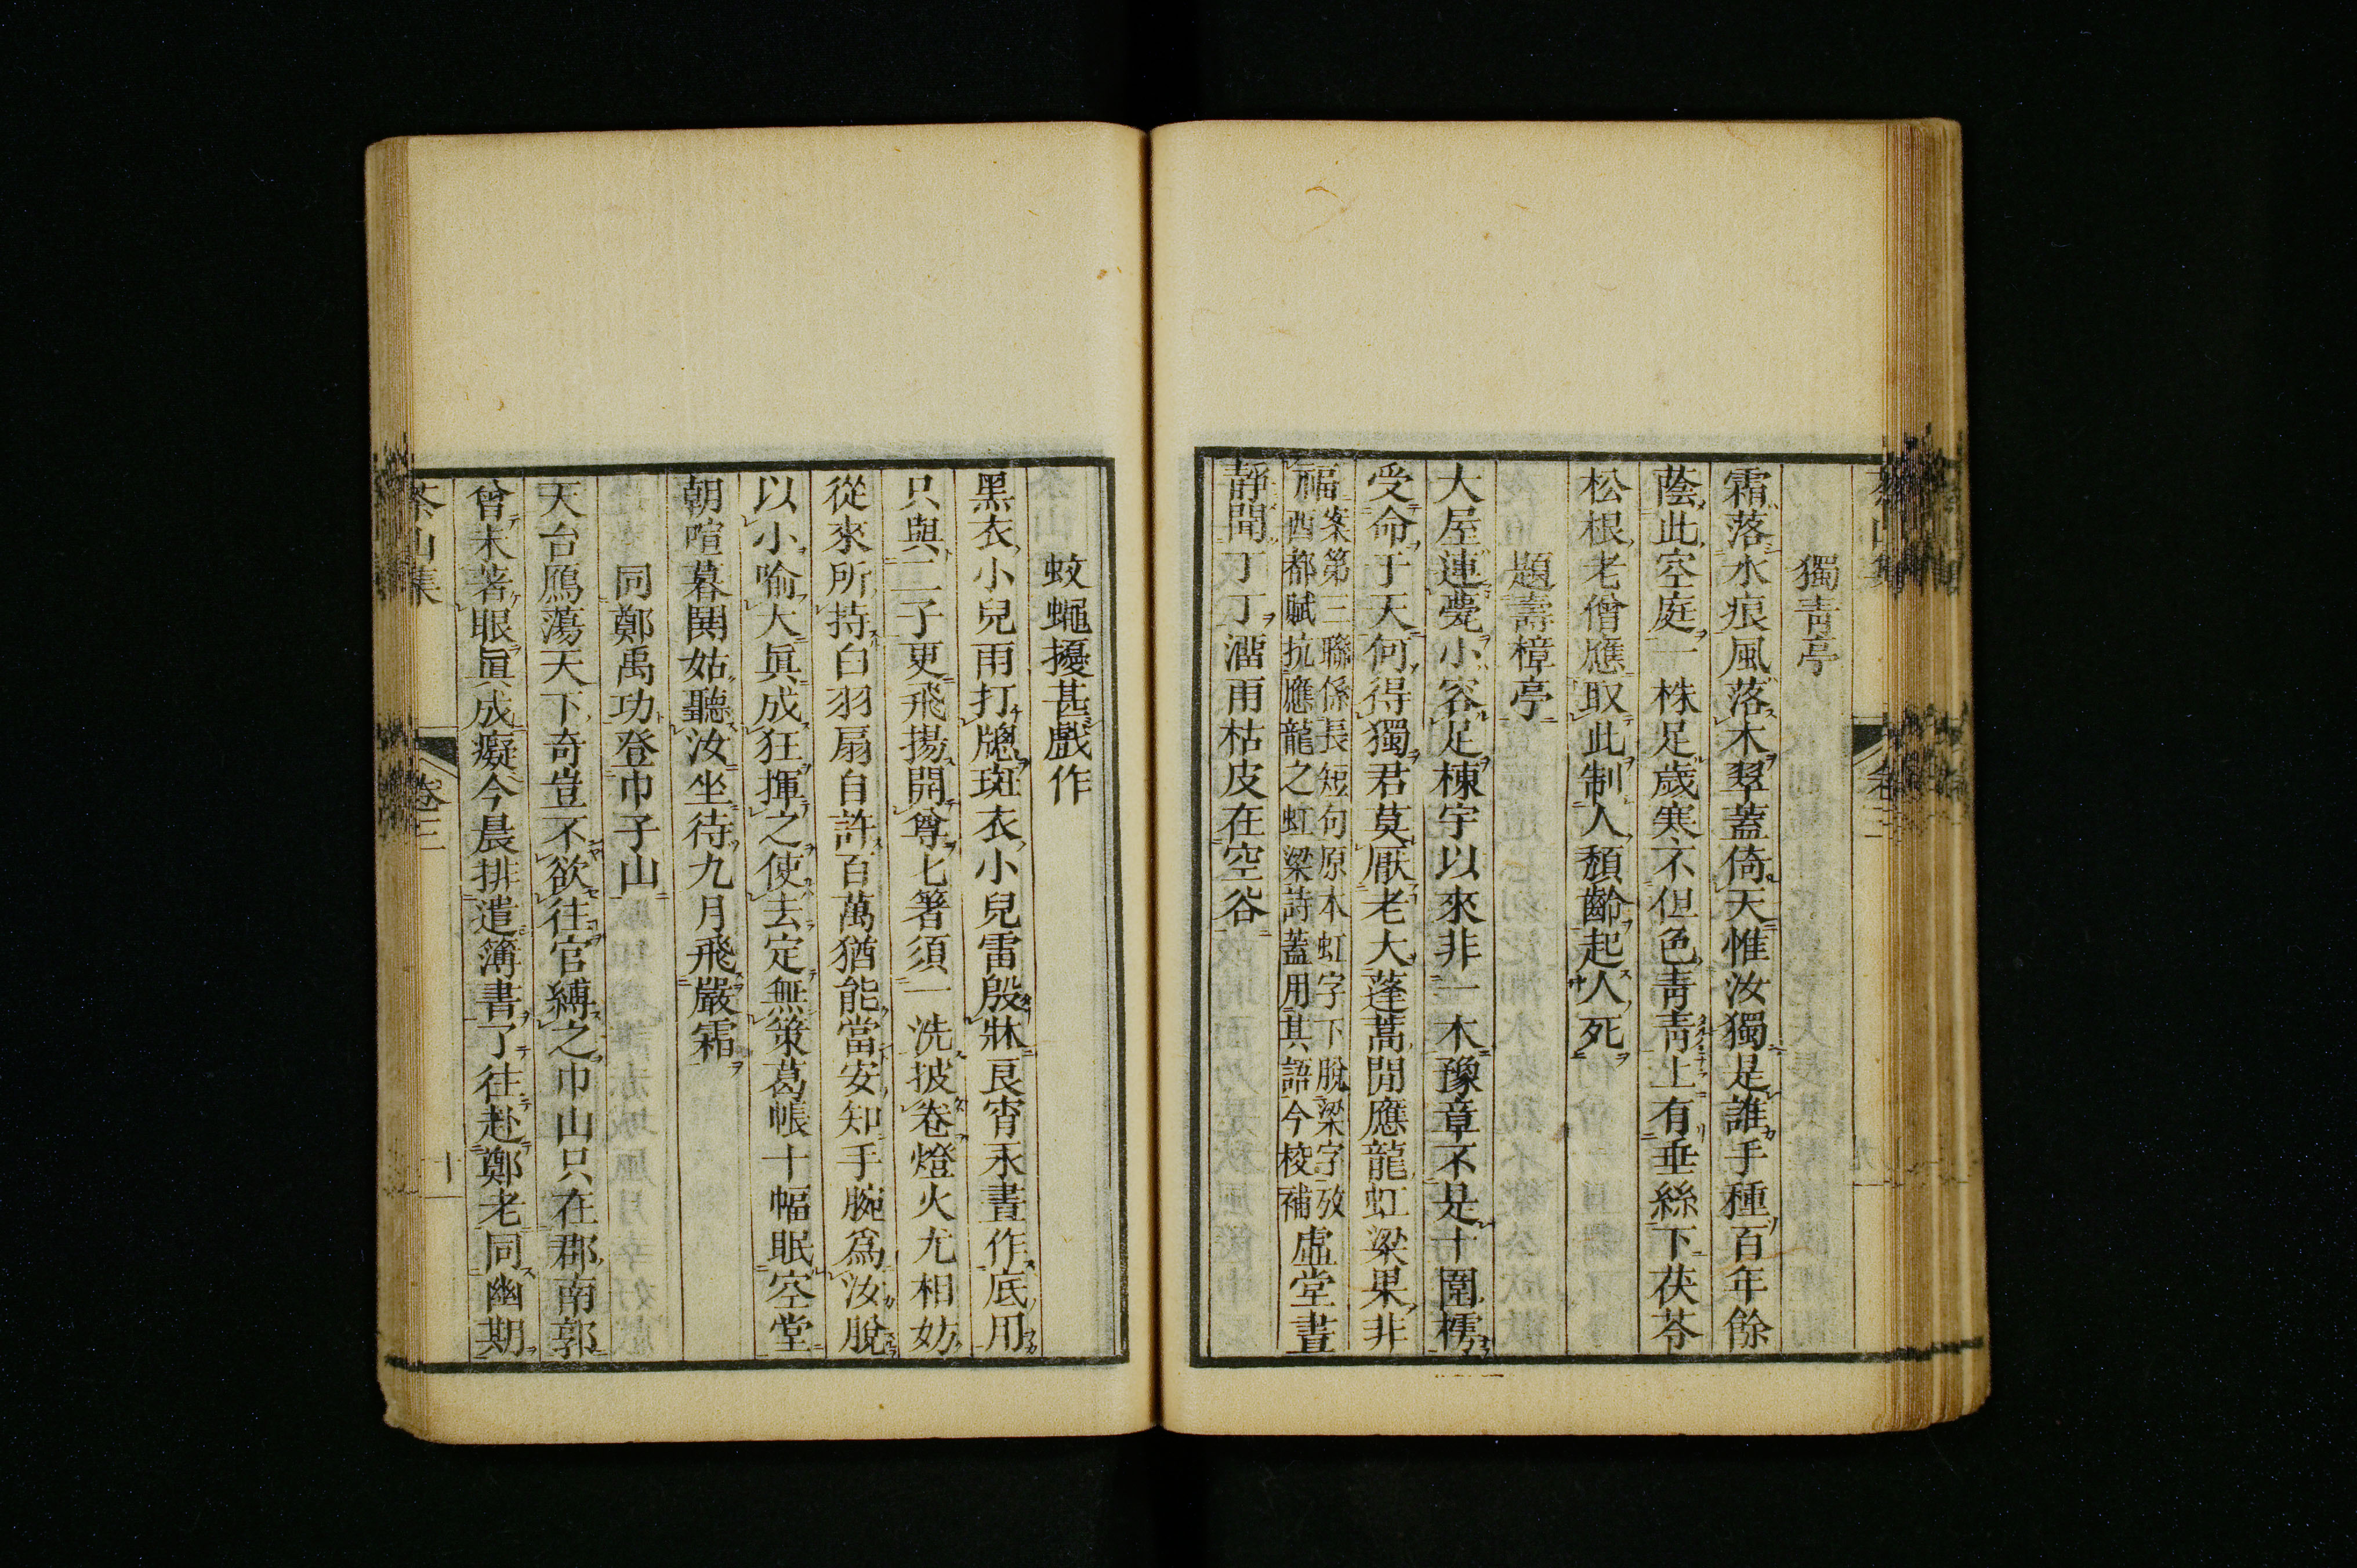 獨青亭
霜落水痕風落木翠蓋倚天惟汝獨是誰手種百年餘
蔭此空庭一株足歲寒不但色青青上有垂絲下茯苓
松根老僧應取此制人頹齡起人死
題壽樟亭
大屋連甍小容足棟宇以來非一木豫章不是十圍樗
受命于天何得獨君莫厭老大蓬蒿閒應龍虹梁果非
福案第三聯係長短句原本虹字下脫梁字攷
西都賦抗應龍之虹梁詩蓋用其語今校補虛堂晝
靜聞丁丁溜雨枯皮在空谷
卷三
蚊蠅擾甚戲作
黑衣小兒雨打牕斑衣小兒雷殷牀良宵永晝作底用
只與二子更飛揚開尊匕箸須一洗披卷燈火尤相妨
從來所持白羽扇自許百萬猶能當安知手腕爲汝脫
以小喻大眞成狂揮之使去定無策葛帳十幅眠空堂
朝喧暮鬨姑聽汝坐待九月飛嚴霜
同鄭禹功登巾子山
天台鴈蕩天下奇豈不欲往官縛之巾山只在郡南郭
曾未著眼眞成癡今晨排遣簿書了往赴鄭老同幽期
茶山集 卷三 十